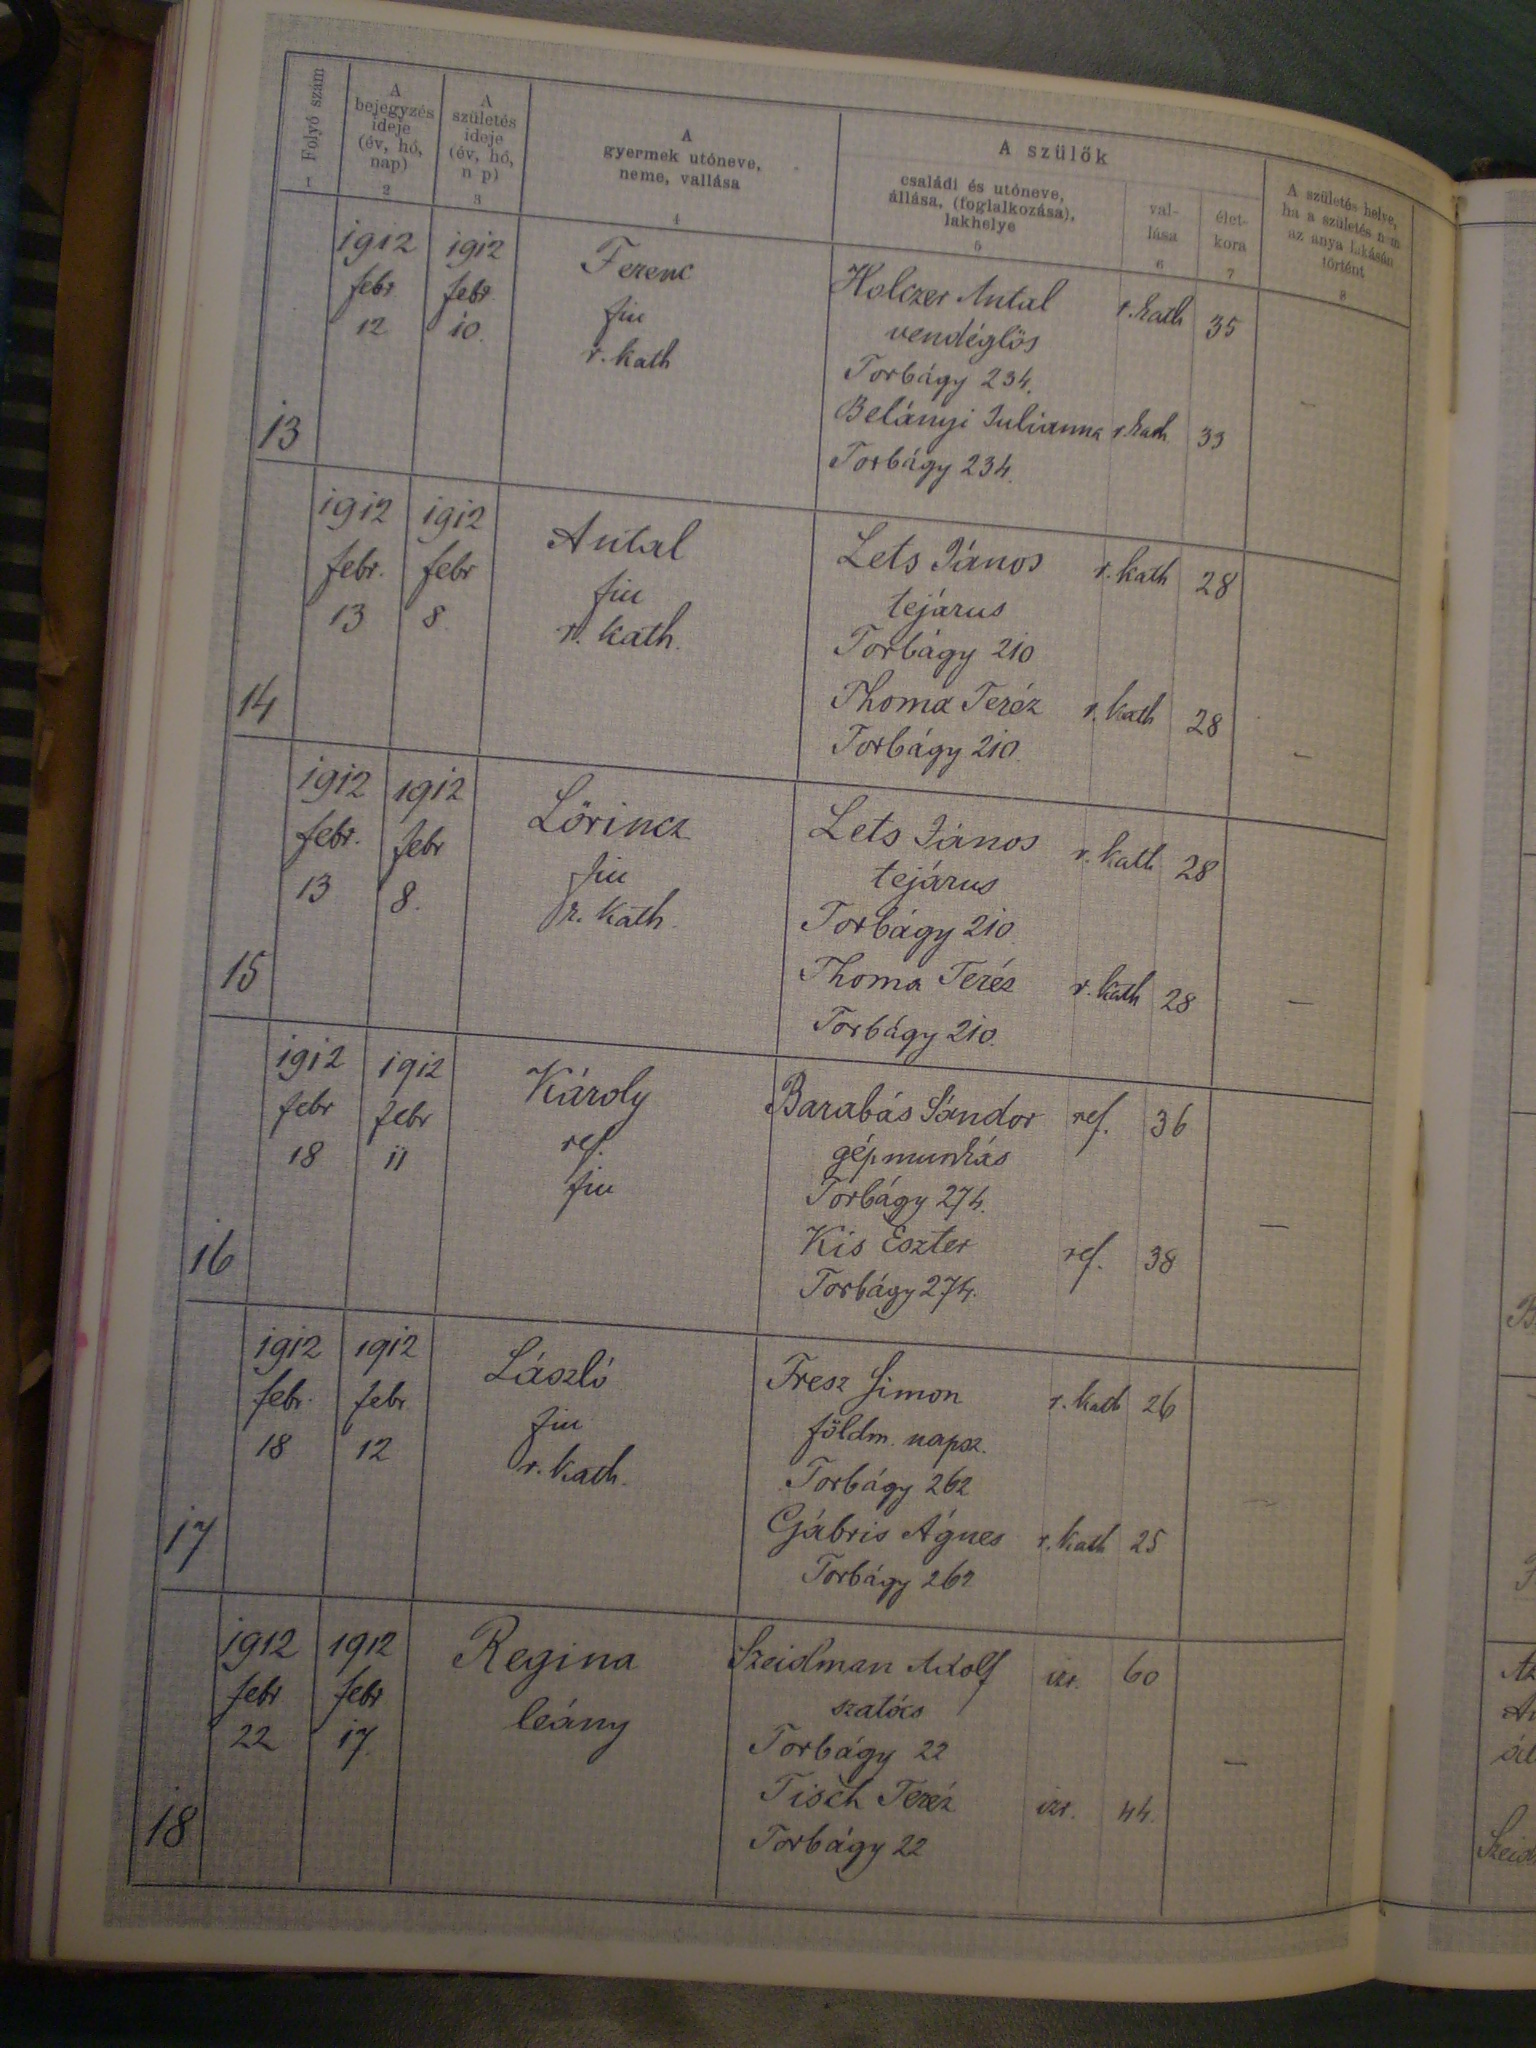 Folyó szám
A bejegyzés ideje (év, hó, nap)
A születés ideje (év, hó, n p)
A gyermek utóneve, neme, vallása
A szülők
családi és utóneve, állása, (foglalkozása), lakhelye
val- lása
élet- kora
A születés helye, ha a születés nem az anya lakásán történt
1 2 3 4 5 6 7 8
13
1912 febr 12
1912 febr. 10.
Ferenc
fiu
r. kath
Holczer Antal r. kath 35
vendéglős
Torbágy 234.
Belányi Julianna r. kath. 33
Torbágy 234.
14
1912 febr. 13
1912 febr 8.
Antal
fiu
r. kath.
Lets János r. kath 28
tejárus
Torbágy 210
Thoma Teréz r. kath 28
Torbágy 210.
15
1912 febr. 13
1912 febr 8.
Lőrincz
fiu
r. kath.
Lets János r. kath 28
tejárus
Torbágy 210.
Thoma Teréz r. kath 28
Torbágy 210.
16
1912 febr 18
1912 febr 11
Károly
ref.
fiu
Barabás Sándor ref. 36
gépmunkás
Torbágy 274.
Kis Eszter ref. 38
Torbágy 274.
17
1912 febr. 18
1912 febr. 12
László
fiu
r. kath.
Fresz Simon r. kath 26
földm. napsz.
Torbágy 262
Gábris Ágnes r. kath 25
Torbágy 262
18
1912 febr 22
1912 febr 17.
Regina
leány
Szeidman Adolf izr. 60
szatócs
Torbágy 22
Tisch Teréz izr. 44.
Torbágy 22